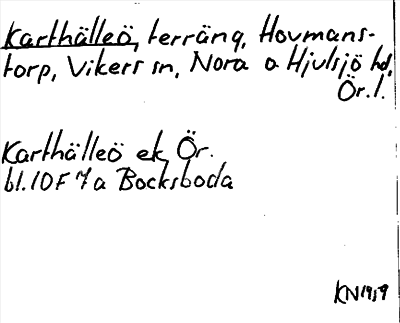 Karthälleö, terräng, Hovmans-
torp, Vikers sn, Nora o Hjulsjö hd,
Ör. l.
Karthälleö ek, Ör.
bl. 10F 7a Bocksboda
KN 1959